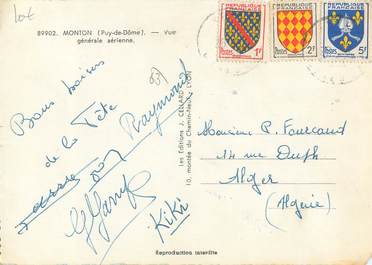 lot
89902. MONTON (Puy-de-Dôme). — Vue
générale aérienne.
REPUBLIQUE FRANÇAISE
1F
REPUBLIQUE FRANÇAISE
2F
REPUBLIQUE FRANÇAISE
5F
Bons baisers
de la Fête
Raymond
Kiki
Les Editions J. CELLARD
10, montée du Chemin-Neuf, LYON
Monsieur P. Fourcaud
14 rue Dupth
Alger
(Algérie)
Reproduction interdite